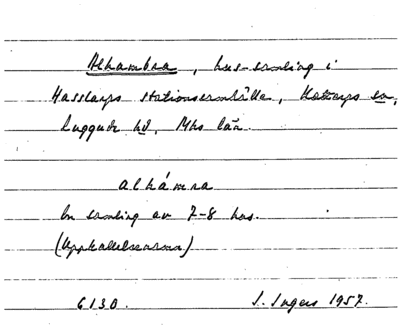 Alhambra, hus-samling i
Hasslarps stationssamhälle, Kattarps sn,
Luggude hd, Mhs län.
alhámra
En samling av 7-8 hus.
(Uppkallelsenamn)
6130. I. Ingers 1957.